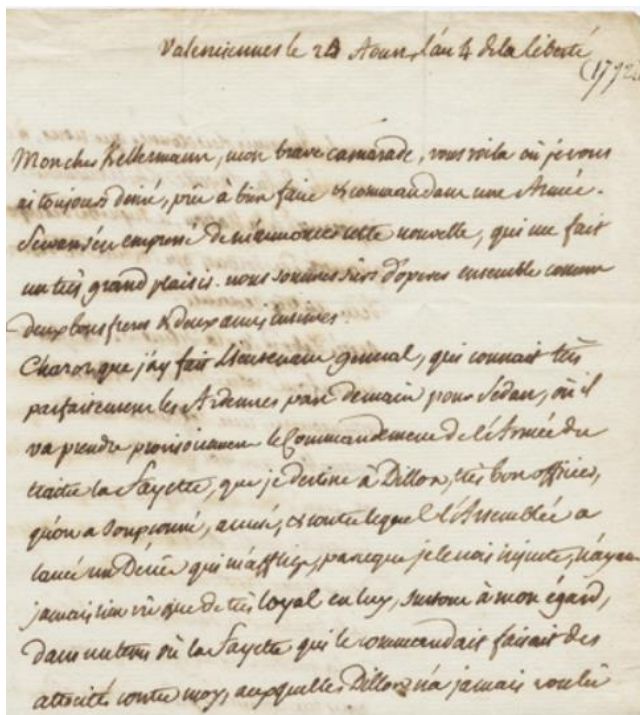 Valenciennes le 24 Aoust, l'an 4 de la liberté
(1792)
Mon cher Kellermann, mon brave camarade, vous voila où je vous
ai toujours desiré, prêt à bien faire & commandant une Armée.
Servan s'est empressé de m'annoncer cette nouvelle, qui me fait
un très grand plaisir. nous sommes sûrs d'operer ensemble comme
deux bons freres & deux amis intimes.
Chazot que j'ay fait Lieutenant general, qui connait très
parfaitement les Ardennes part demain pour Sedan, où il
va prendre provisoirement le Commandement de l'Armée du
traitre la Fayette, que je destine à Dillon, très bon officier,
qu'on a soupçonné, accusé, & contre lequel l'Assemblée a
lancé un Décret qui m'afflige, parceque je le crois injuste, n'ayant
jamais rien vû que de très loyal en luy, surtout à mon égard,
dans un tems où la Fayette qui le commandait faisait des
atrocités contre moy, auxquelles Dillon n'a jamais voulu